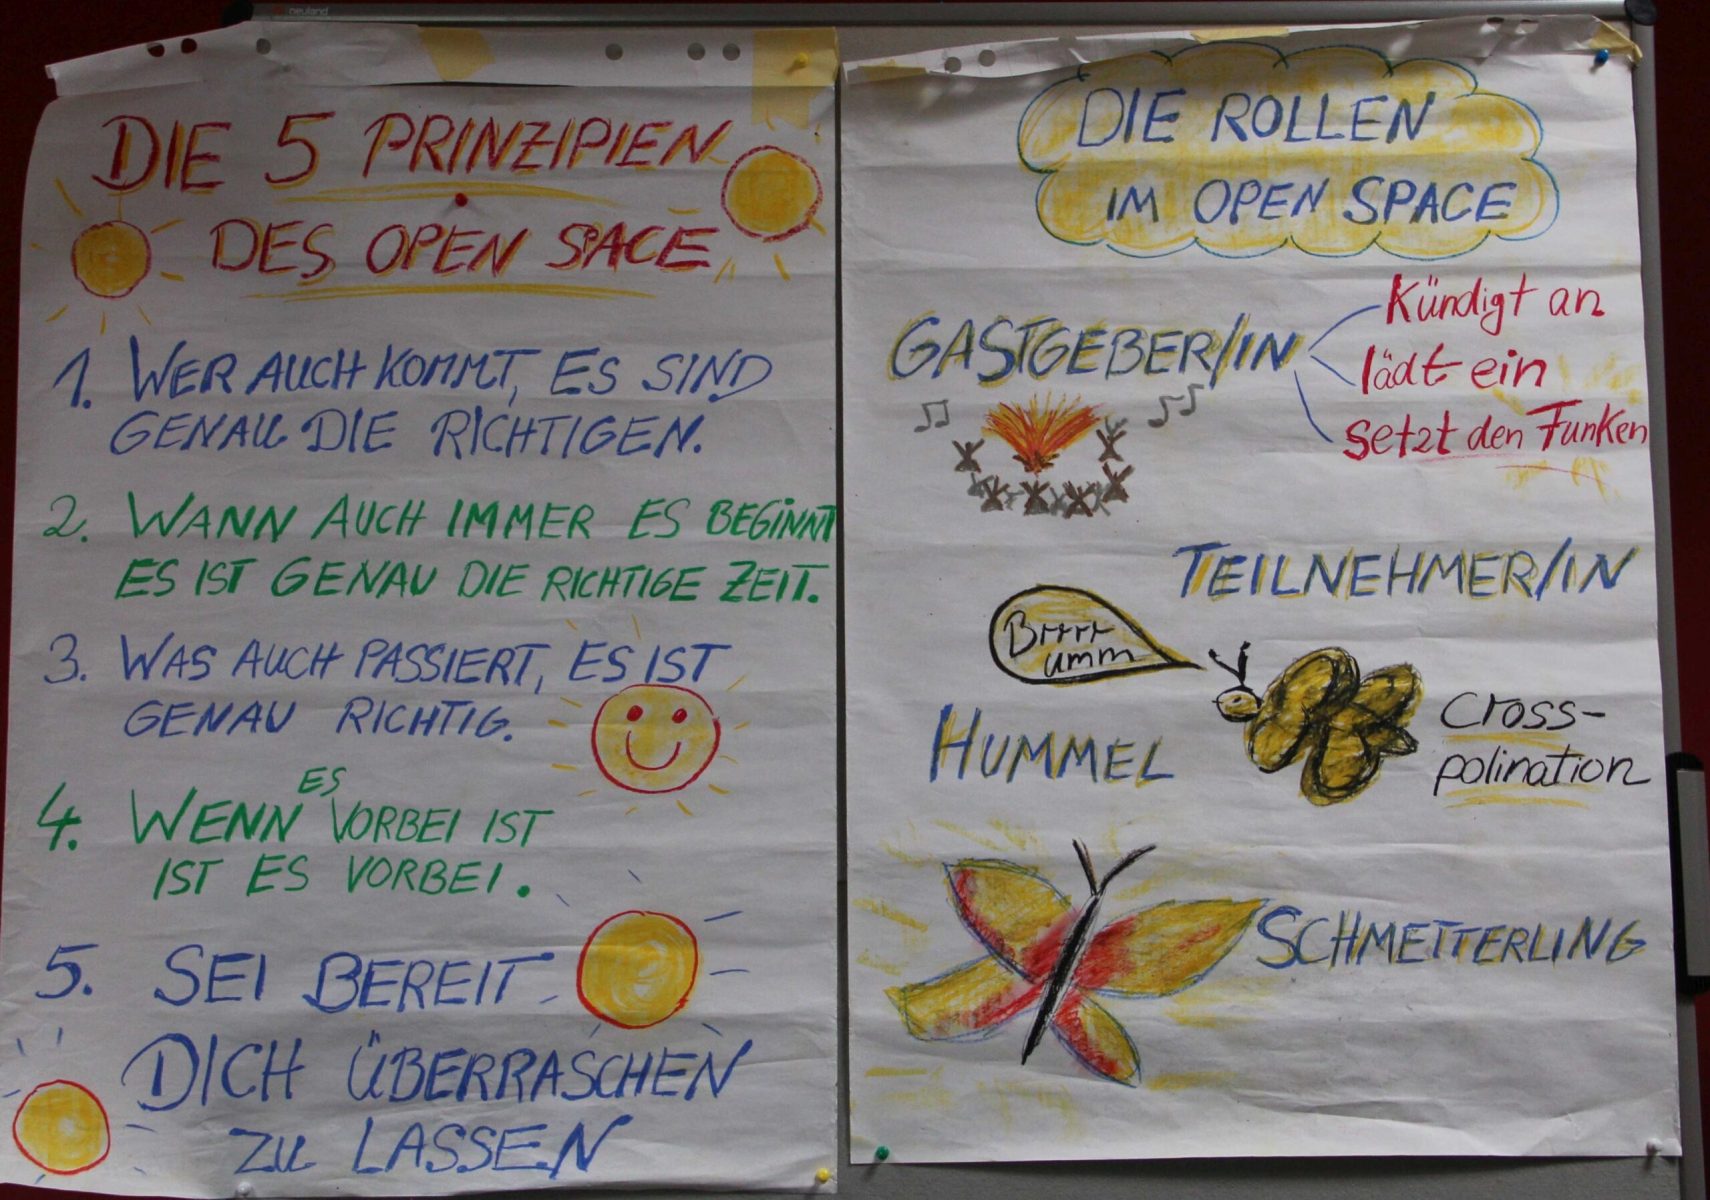 neuland
DIE 5 PRINZIPIEN
DES OPEN SPACE
1. WER AUCH KOMMT, ES SIND
GENAU DIE RICHTIGEN.
2. WANN AUCH IMMER ES BEGINNT
ES IST GENAU DIE RICHTIGE ZEIT.
3. WAS AUCH PASSIERT, ES IST
GENAU RICHTIG.
4. WENN ES VORBEI IST
IST ES VORBEI.
5. SEI BEREIT
DICH ÜBERRASCHEN
ZU LASSEN
DIE ROLLEN
IM OPEN SPACE
GASTGEBER/IN
Kündigt an
lädt ein
setzt den Funken
TEILNEHMER/IN
Brrrr
umm
HUMMEL
Cross-
polination
SCHMETTERLING